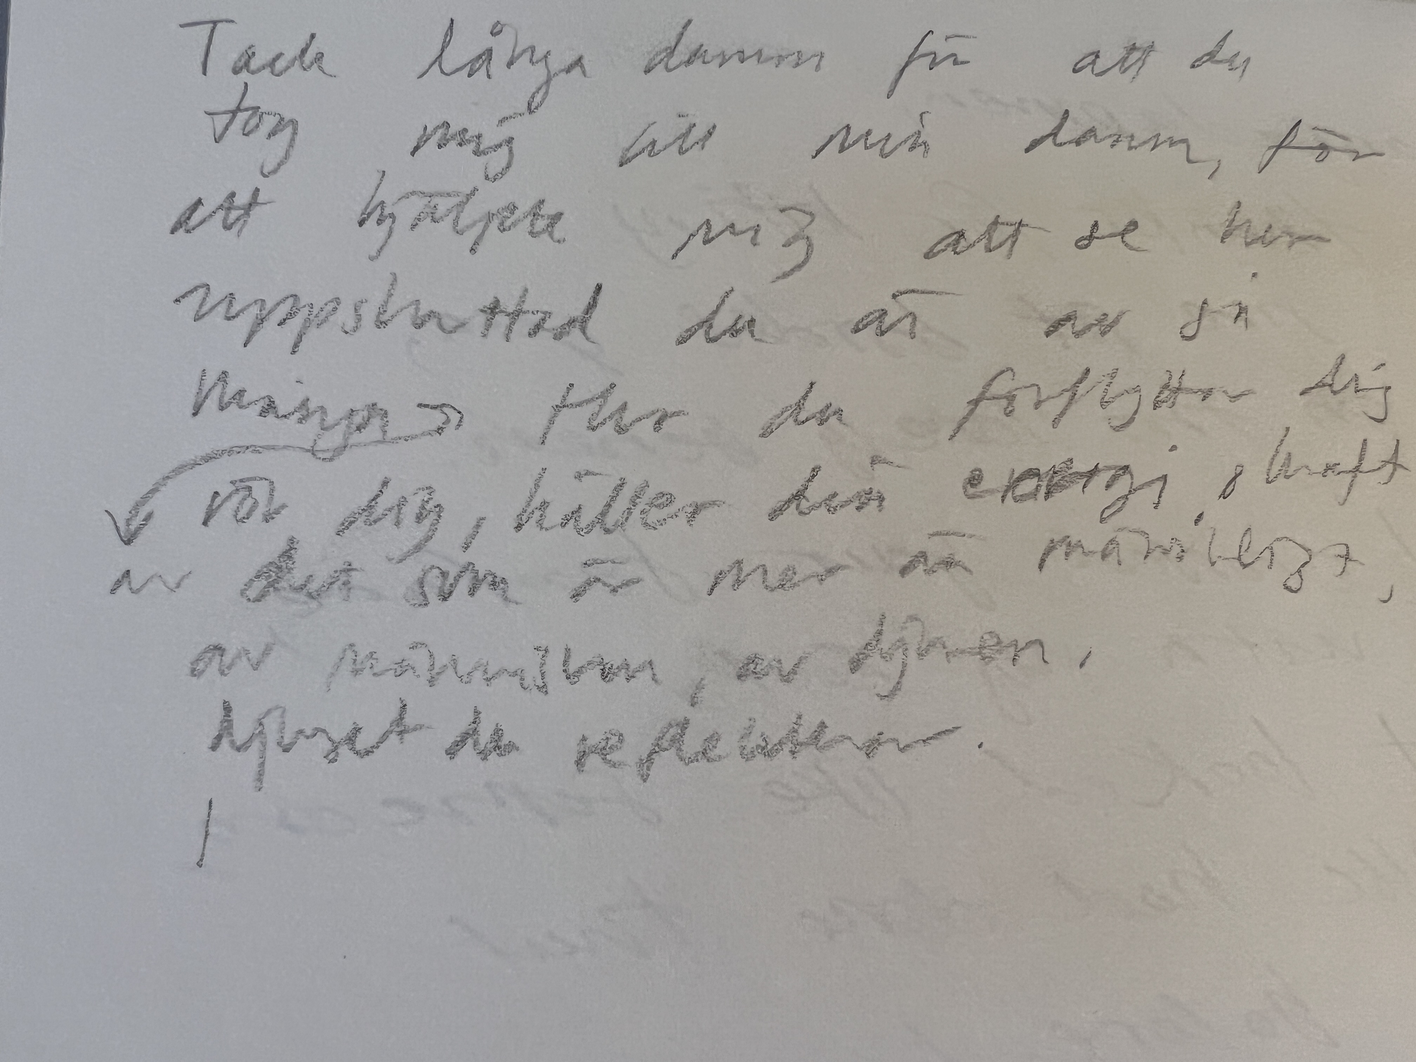 Tack långa damm för att du
tog mig till min damm, för
att hjälpte mig att se hur
uppskattad du är av så
många
du förflyttar dig
rör dig, håller din energi, & kraft
av det som är mer än mänskligt,
av människan, av djuren.
ljuset du reflekterar.